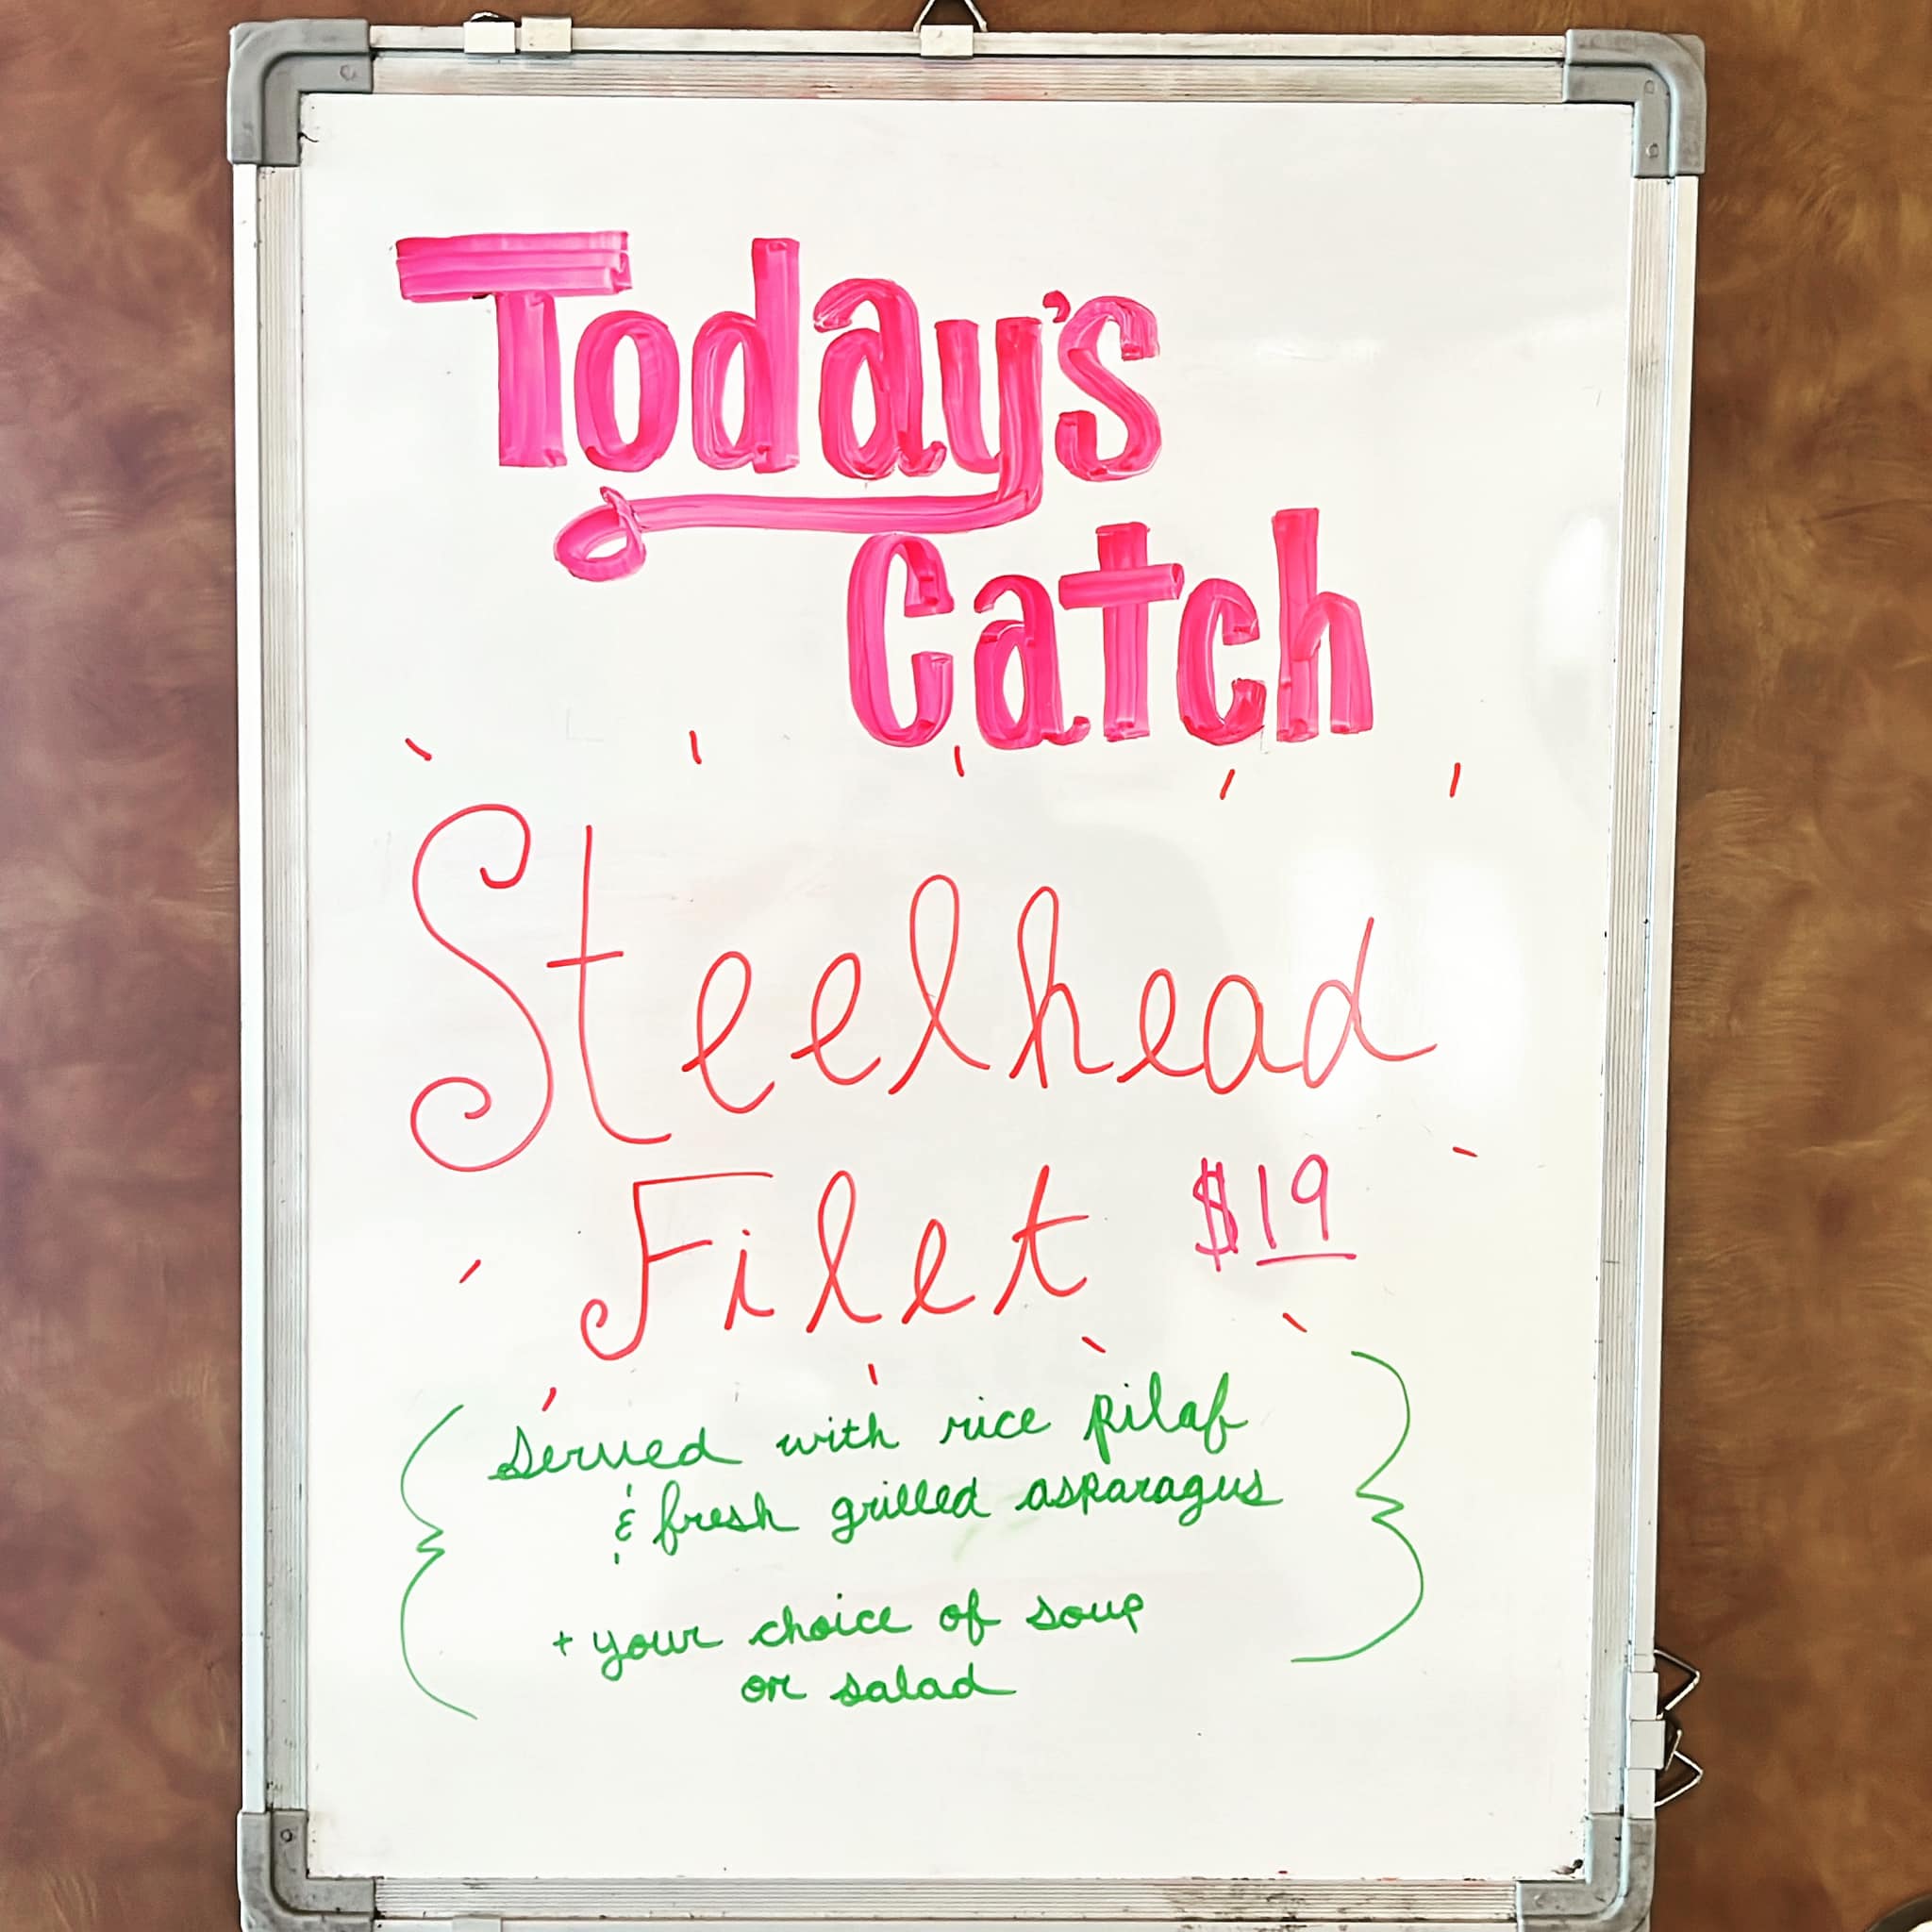 Today's
Catch
Steelhead
Filet $19
Served with rice pilaf
& fresh grilled asparagus
+ your choice of soup
or salad